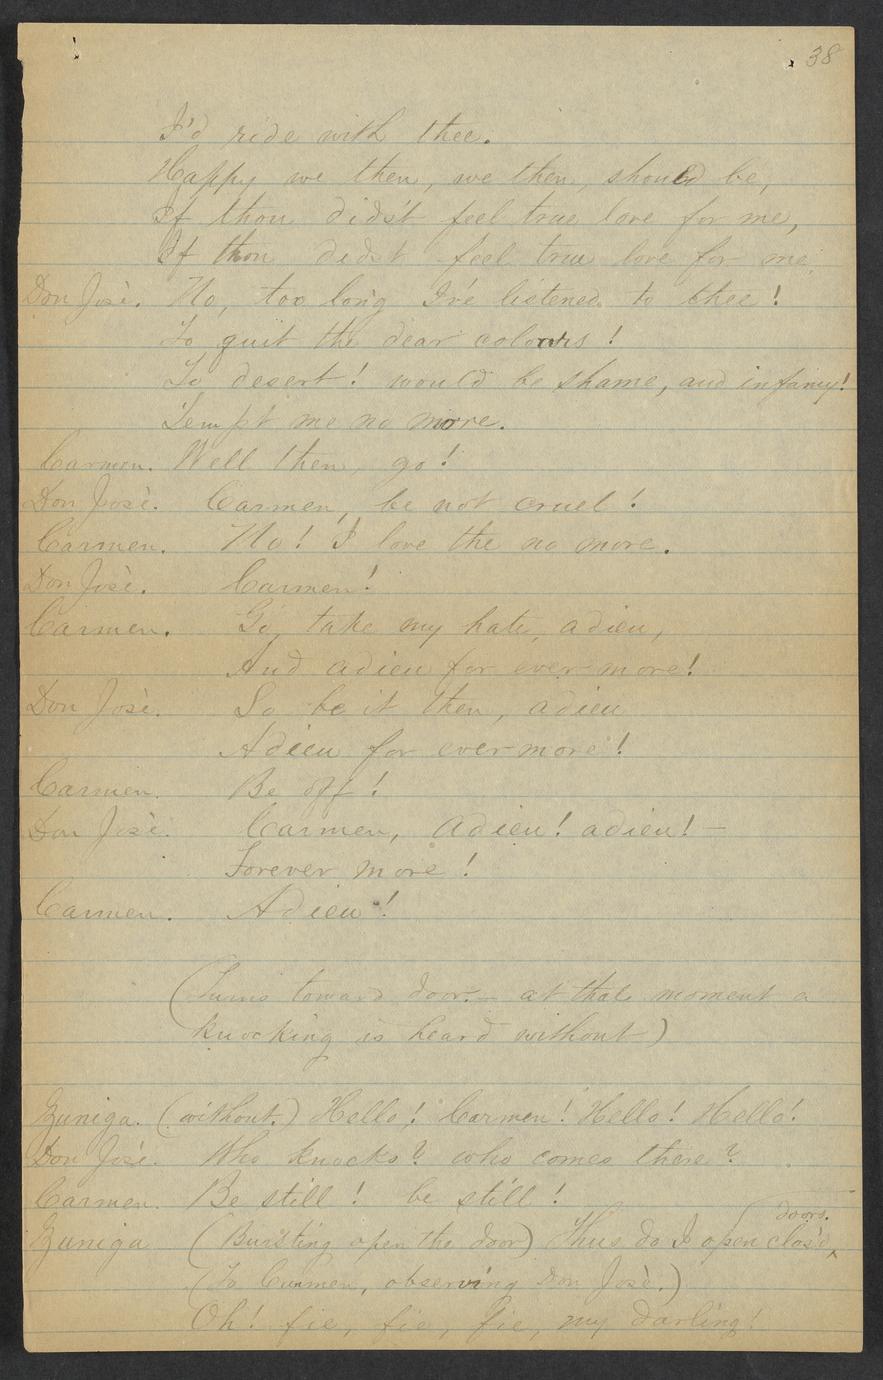 38
I'd ride with thee.
Happy we then, we then, should be,
If thou did'st feel true love for me,
If thou didst feel true love for me,
Don Josè. No, too long I've listened to thee!
To quit the dear colours!
To desert! would be shame, and infamy!
Tempt me no more.
Carmen. Well then, go!
Don Josè. Carmen, be not cruel!
Carmen. No! I love the no more.
Don Josè. Carmen!
Carmen. Go, take my hate, adieu,
And adieu for ever more!
Don Josè. So be it then, adieu
Adieu for evermore!
Carmen. Be off!
Don Josè. Carmen, adieu! adieu! —
Forever more!
Carmen. Adieu!
(Turns toward door. — at that moment a
knocking is heard without)
Zuniga. (without.) Hello! Carmen! Hello! Hello!
Don Josè. Who knocks? who comes there?
Carmen. Be still! be still!
doors.
Zuniga (Bursting open the door) Thus do I open clos'd ^
(To Carmen, observing Don Josè.)
Oh! fie, fie, fie, my darling!